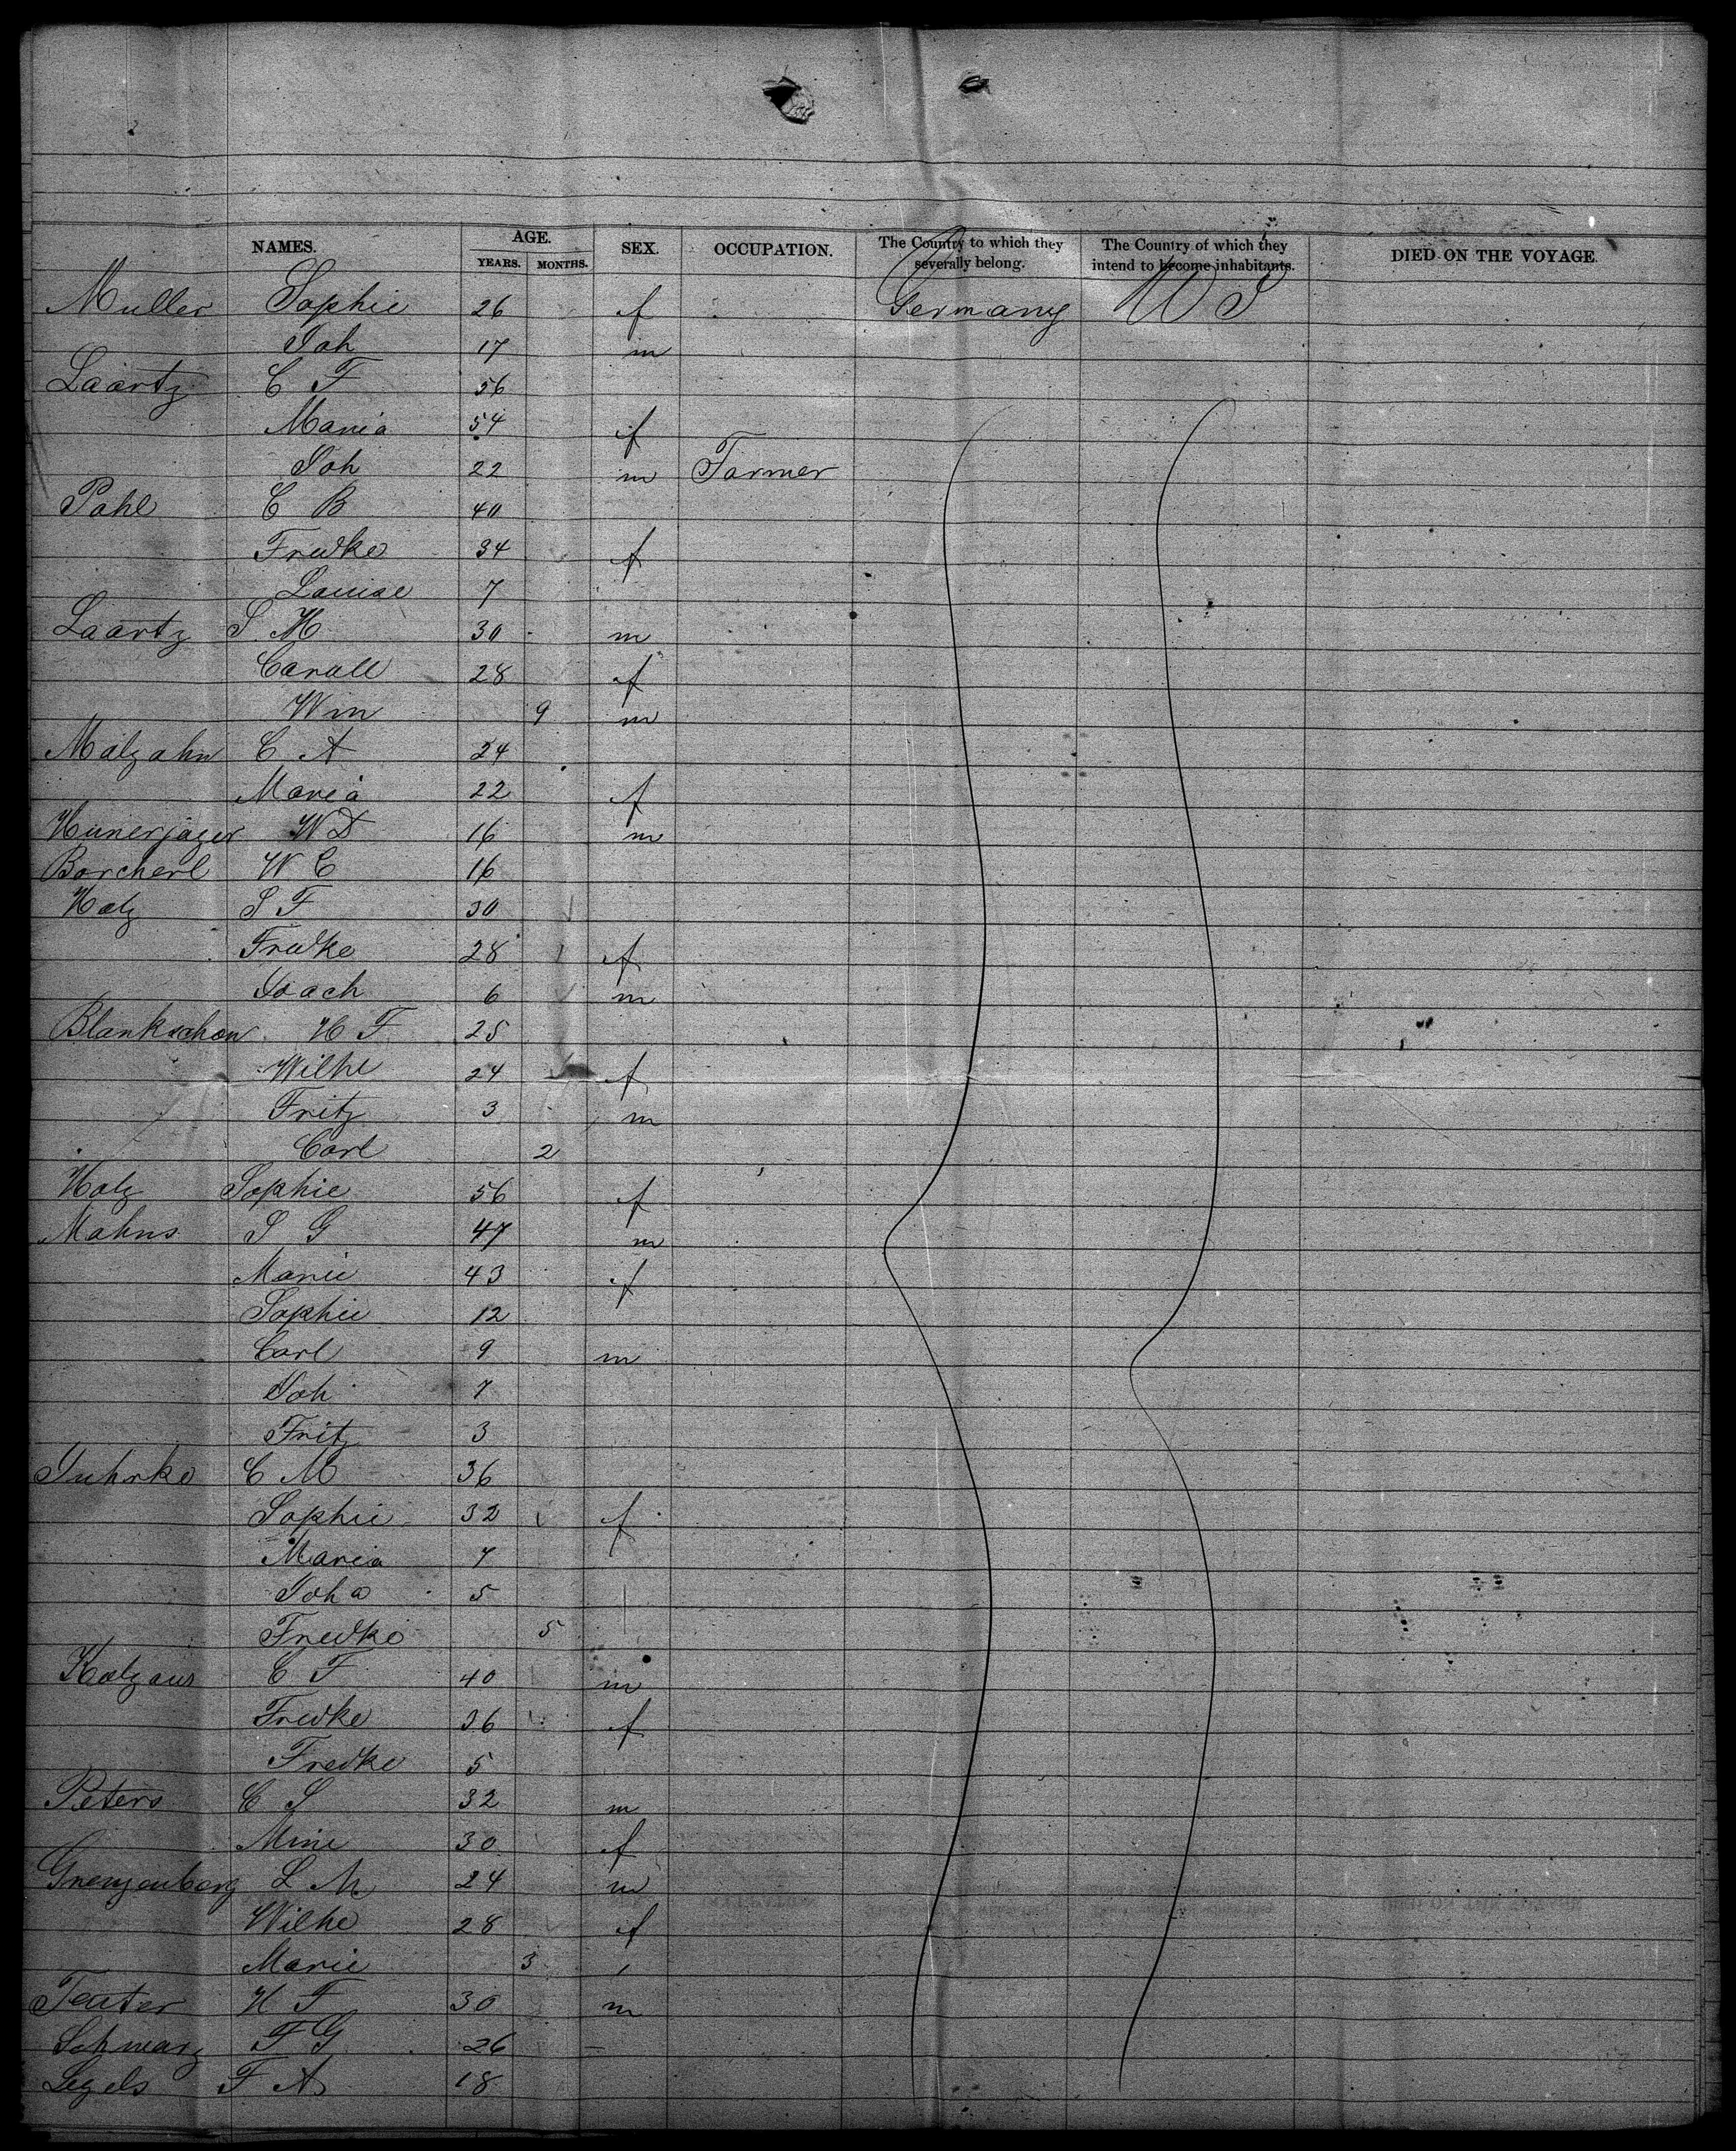 NAMES. AGE. SEX. OCCUPATION. The Country to which they severally belong. The Country of which they intend to become inhabitants. DIED ON THE VOYAGE.
YEARS. MONTHS.
Muller Sophie 26 f Germany U S
Joh 17 m
Laartz C F 56
Maria 54 f
Joh 22 m Farmer
Pahl C B 40
Fredke 34 f
Louise 7
Laartz J. H 30 m
Caroll 28 f
Wm 9 m
Malzahn C A 24
Maria 22 f
Hunerjager W D 16 m
Borcherl W C 16
Holz J F 30
Fredke 28 f
Joach 6 m
Blankschon H F 25
Wilhe 24 f
Fritz 3 m
Carl 2
Holz Sophie 56 f
Mahns J G 47 m
Marie 43 f
Sophie 12
Carl 9 m
Joh 7
Fritz 3
Juhrke C M 36
Sophie 32 f
Maria 7
Joha 5
Fredke 5
Kolzaus C F 40 m
Fredke 36 f
Fredke 5
Peters C J 32 m
Mine 30 f
L M 24 m
Wilhe 28 f
Marie 3
Teuter H F 30 m
Schwarz F G 26
Segels F A 18